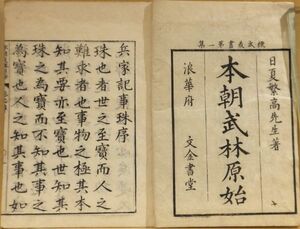 日夏繁高先生著
本朝武林原始
浪華府 文金書堂
兵家記事珠序
珠也者世之至寶而人之
難求者也事物之極其本
知其要亦至寶也世知其
珠之為寶而不知其事之
為寶也人之知其事也如